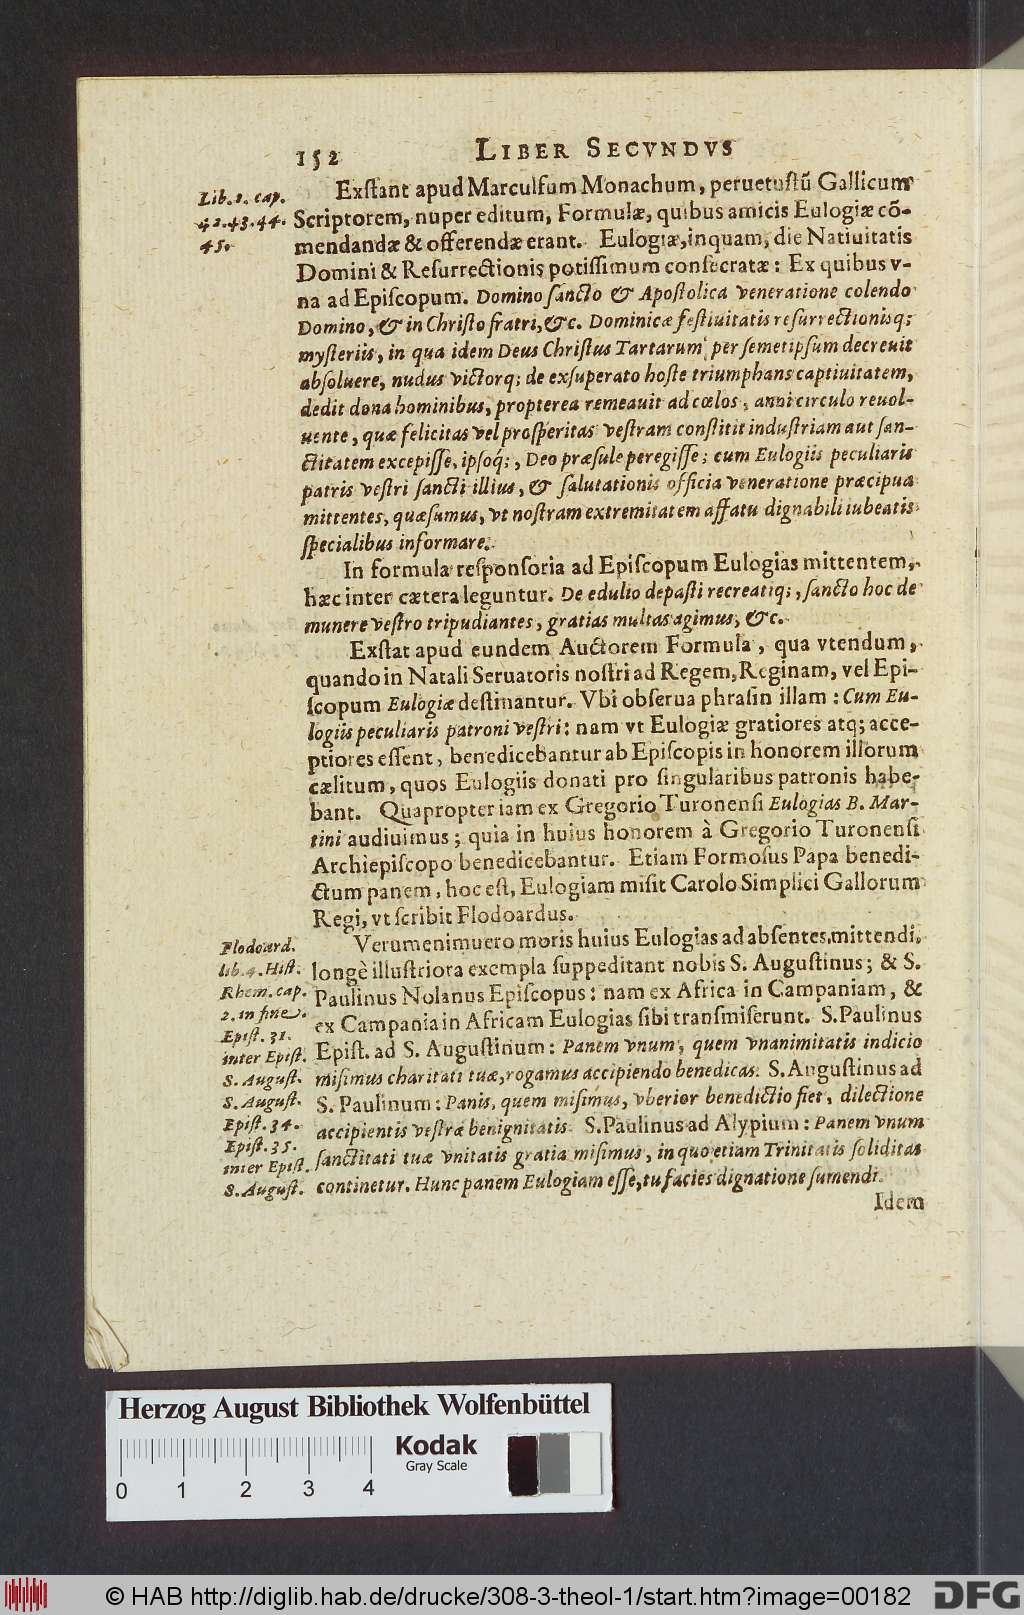 152 LIBER SECVNDVS
Lib. 2. cap.
42. 43. 44.
45.
Exſtant apud Marculfum Monachum, peruetuſtũ Gallicum
Scriptorem, nuper editum, Formulæ, quibus amicis Eulogiæ cõ-
mendandæ & offerendæ erant. Eulogiæ, inquam, die Natiuitatis
Domini & Reſurrectionis potiſſimum conſecratæ: Ex quibus v-
na ad Epiſcopum. Domino ſancto & Apoſtolica veneratione colendo
Domino, & in Chriſto fratri, &c. Dominicæ feſtiuitatis reſurrectionisq;
myſteriis, in qua idem Deus Chriſtus Tartarum per ſemetipſum decreuit
abſoluere, nudus victorq; de exſuperato hoſte triumphans captiuitatem,
dedit dona hominibus, propterea remeauit ad cœlos, anni circulo reuol-
uente, quæ felicitas vel proſperitas veſtram conſtitit induſtriam aut ſan-
ctitatem excepiſſe, ipſoq́;, Deo præſule peregiſſe; cum Eulogiis peculiaris
patris veſtri ſancti illius, & ſalutationis officia veneratione præcipua
mittentes, quæſumus, vt noſtram extremitatem affatu dignabili iubeatis
ſpecialibus informare.
In formula reſponſoria ad Epiſcopum Eulogias mittentem,
hæc inter cætera leguntur. De edulio depaſti recreatiq;, ſancto hoc de
munere veſtro tripudiantes, gratias multas agimus, &c.
Exſtat apud eundem Auctorem Formula, qua vtendum,
quando in Natali Seruatoris noſtri ad Regem, Reginam, vel Epi-
ſcopum Eulogiæ deſtinantur. Vbi obſerua phraſin illam: Cum Eu-
logiis peculiaris patroni veſtri: nam vt Eulogiæ gratiores atq; acce-
ptiores eſſent, benedicebantur ab Epiſcopis in honorem illorum
cælitum, quos Eulogiis donati pro ſingularibus patronis habe-
bant. Quapropter iam ex Gregorio Turonenſi Eulogias B. Mar-
tini audiuimus; quia in huius honorem à Gregorio Turonenſi
Archiepiſcopo benedicebantur. Etiam Formoſus Papa benedi-
ctum panem, hoc eſt, Eulogiam miſit Carolo Simplici Gallorum
Regi, vt ſcribit Flodoardus.
Flodoard.
lib. 4. Hiſt.
Rhem. cap.
2. in fine.
Epiſt. 31.
inter Epiſt.
S. Auguſt.
S. Auguſt.
Epiſt. 34.
Epiſt. 35.
inter Epiſt.
S. Auguſt.
Verumenimuero moris huius Eulogias ad abſentes mittendi,
longè illuſtriora exempla ſuppeditant nobis S. Auguſtinus; & S.
Paulinus Nolanus Epiſcopus: nam ex Africa in Campaniam, &
ex Campania in Africam Eulogias ſibi tranſmiſerunt. S. Paulinus
Epiſt. ad S. Auguſtinum: Panem vnum, quem vnanimitatis indicio
miſimus charitati tuæ, rogamus accipiendo benedicas. S. Auguſtinus ad
S. Paulinum: Panis, quem miſimus, vberior benedictio fiet, dilectione
accipientis veſtræ benignitatis. S. Paulinus ad Alypium: Panem vnum
ſanctitati tuæ vnitatis gratia miſimus, in quo etiam Trinitatis ſoliditas
continetur. Hunc panem Eulogiam eſſe, tu facies dignatione ſumendi.
Idem
Herzog August Bibliothek Wolfenbüttel
Kodak
Gray Scale
0 1 2 3 4
© HAB http://diglib.hab.de/drucke/308-3-theol-1/start.htm?image=00182 DFG